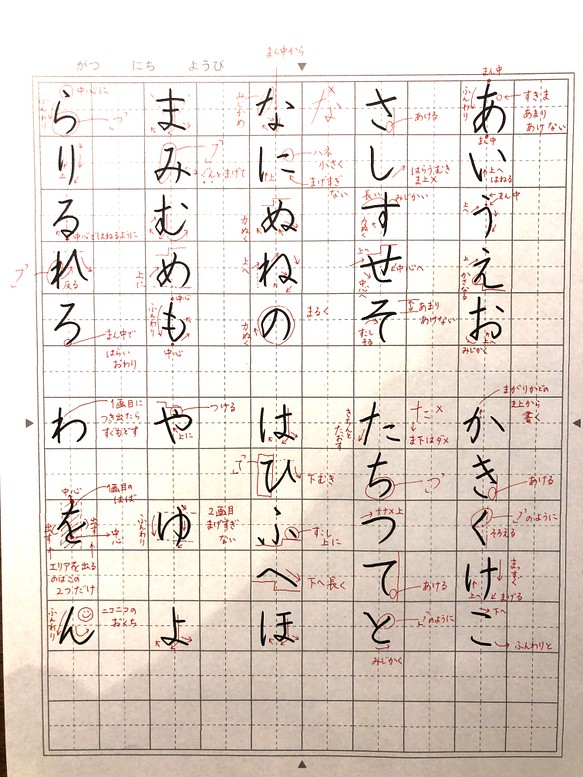 がつ にち ようび
まん中から
まん中
あ
すきま
あまり
あけない
ふんわり
い
まん中
上へ
はねる
う
まん中
上へ
え
かさなる
お
上へ
みじかく
か
まがりかどの
ま上から
書く
き
あける
く
のように
そろえる
け
まっすぐ
上へ
まげる
こ
下へ
ふんわりと
さ
あける
し
はらうむき
ま上×
す
長い
みじかい
力ぬく
せ
上へ
中心へ
中心へ
そ
あまり
あけない
すこし
そる
た
た×
ま下はダメ
きちんと
たおす
ち
つ
ナナメ上
て
あける
と
のように
みじかく
な
な×
みじかめ
に
ハネ
小さく
まげすぎ
ない
上
ぬ
力ぬく
ね
上へ
の
まるく
力ぬく
は
ひ
下むき
ふ
すこし
上に
へ
下へ長く
ほ
ま
み
ぐんとまげて
む
め
上に
も
中心
ふんわり
中心
や
つける
上に
ゆ
2画目
まげすぎ
ない
ふんわり
よ
ら
中心に
り
る
中心とはねるように
れ
反る
ろ
まん中で
はらい
おわり
わ
1画目に
つき出たら
すぐもどす
を
1画目の
はば
中心
出す
出す
中心
エリアを出る
のはこの
2つだけ
ん
ニコニコの
おくち
ふんわり